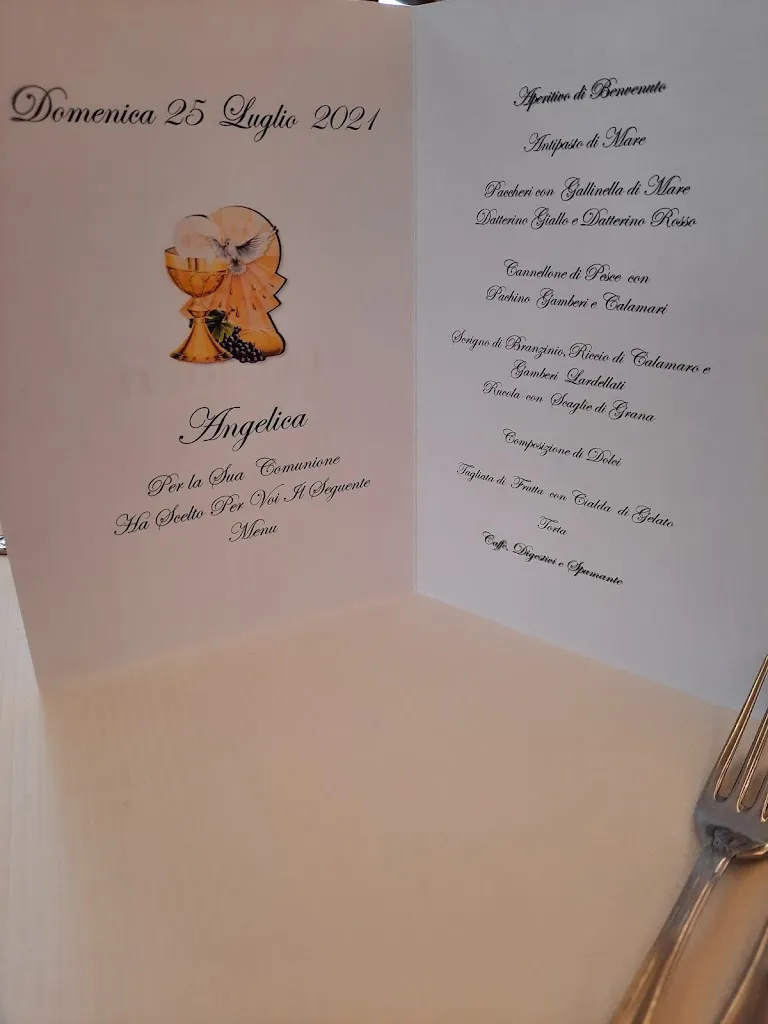 Domenica 25 Luglio 2021
Angelica
Per la Sua Comunione
Ha Scelto Per Voi Il Seguente
Menu
Aperitivo di Benvenuto
Antipasto di Mare
Paccheri con Gallinella di Mare
Datterino Giallo e Datterino Rosso
Cannellone di Pesce con
Pachino Gamberi e Calamari
Scrigno di Branzino, Riccio di Calamaro e
Gamberi Lardellati
Rucola con Scaglie di Grana
Composizione di Dolci
Tagliata di Frutta con Cialda di Gelato
Torta
Caffè, Digestivi e Spumante